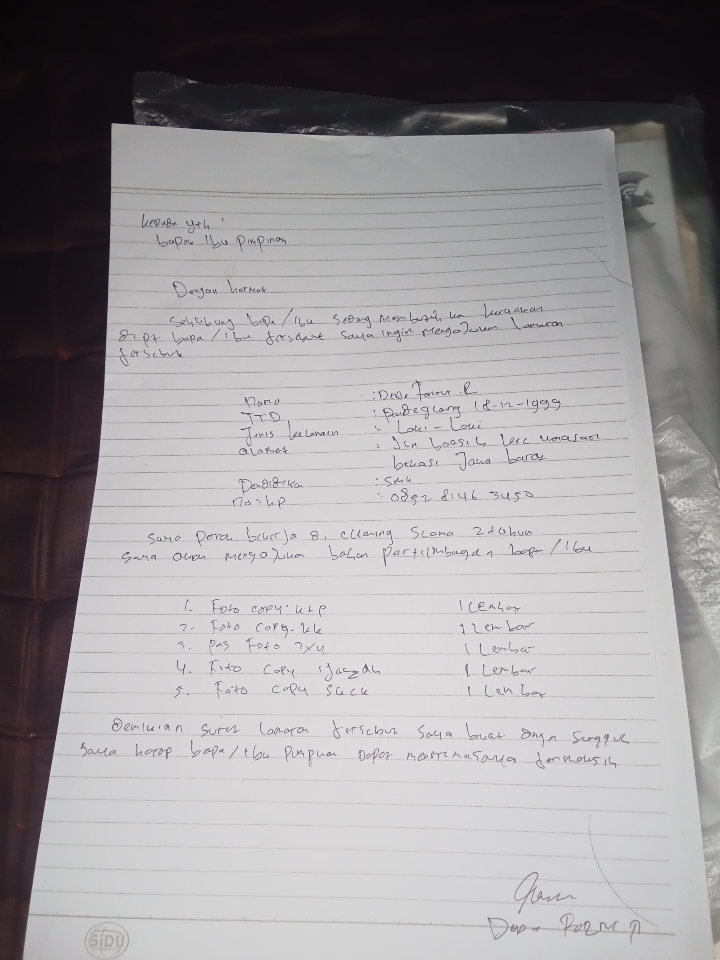 kepada yth :
bapak ibu pimpinan
Dengan hormat
Sehubung bapa/ibu sedang membutuhkan karyawan
di pt bapa/ibu tersebut saya ingin mengajukan lamaran
tersebut
Nama : Dede R
TTD : Pandeglang 18-12-1999
Jenis kelamain : Laki - Laki
alamat : Jln kec
bekasi Jawa barat
Pendidikan : SMK
no:hp : 0852 8146 3450
Saya Perna bekerja di clening Slama 2 tahun
Saya akan mengajukan bahan partimbagan bapa/ibu
1. Foto copy. ktp 1 Lembar
2. Foto copy. kk 1 Lembar
3. pas Foto 3x4 1 Lembar
4. Foto Copy ijazah 1 Lembar
5. Foto copy skck 1 Lembar
Demikian surat lamaran tersebut saya buat dngn sunggu
Saya harap bapa/ibu pimpinan dapat menerima saya
SiDU